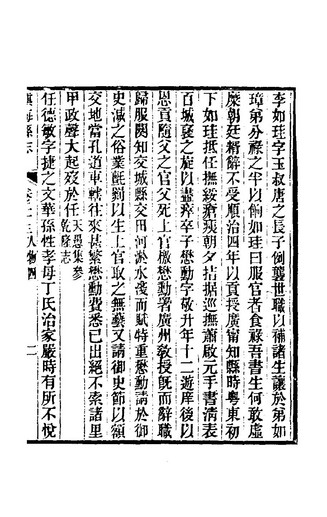 李如珪字玉叔唐之長子例襲世職以補諸生讓於弟如
璋弟分祿之半以餉如珪曰服官者食祿吾書生何敢虛
糜朝廷糈辭不受順治四年以貢授廣甯知縣時粵東初
下如珪抵任撫綏瘡痍朝夕拮据巡撫蕭啟元手書清表
百城褒之旋以盡瘁卒子懋勳字敬升年十二遊庠後以
恩貢隨父之官父死上官檄懋勳署廣州敎授旣而辭職
歸服闋知交城縣交田河淤水淺而賦特重懋勳請於御
史減之俗業氈罽以生上官取之無藝又請御史節以額
交地當孔道車轄往來甚繁懋勳費悉已出絕不索諸里
甲政聲大起歿於任天愚集參乾隆志
任德敏字捷之文華孫性孝母丁氏治家嚴時有所不悅
鎮海縣志 卷二十三人物四 二